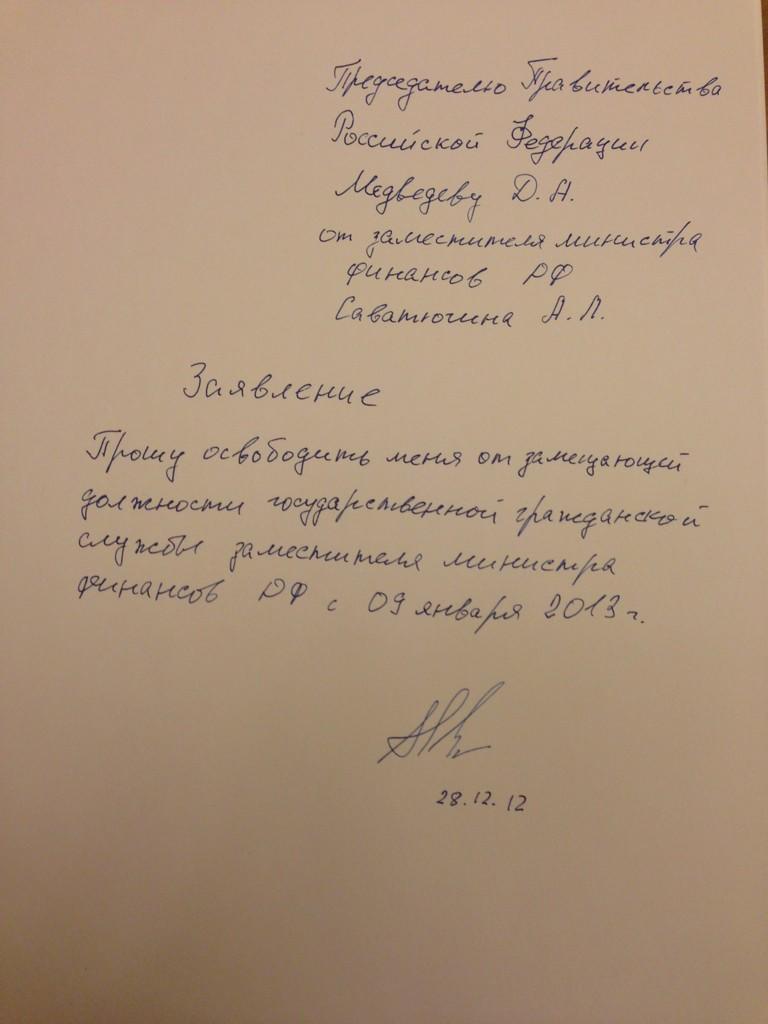 Председателю Правительства
Российской Федерации
Медведеву Д.А.
от заместителя министра
финансов РФ
Саватюгина А.Л.
Заявление
Прошу освободить меня от замещающей
должности государственной гражданской
службы заместителя министра
финансов РФ с 09 января 2013 г.
28.12.12